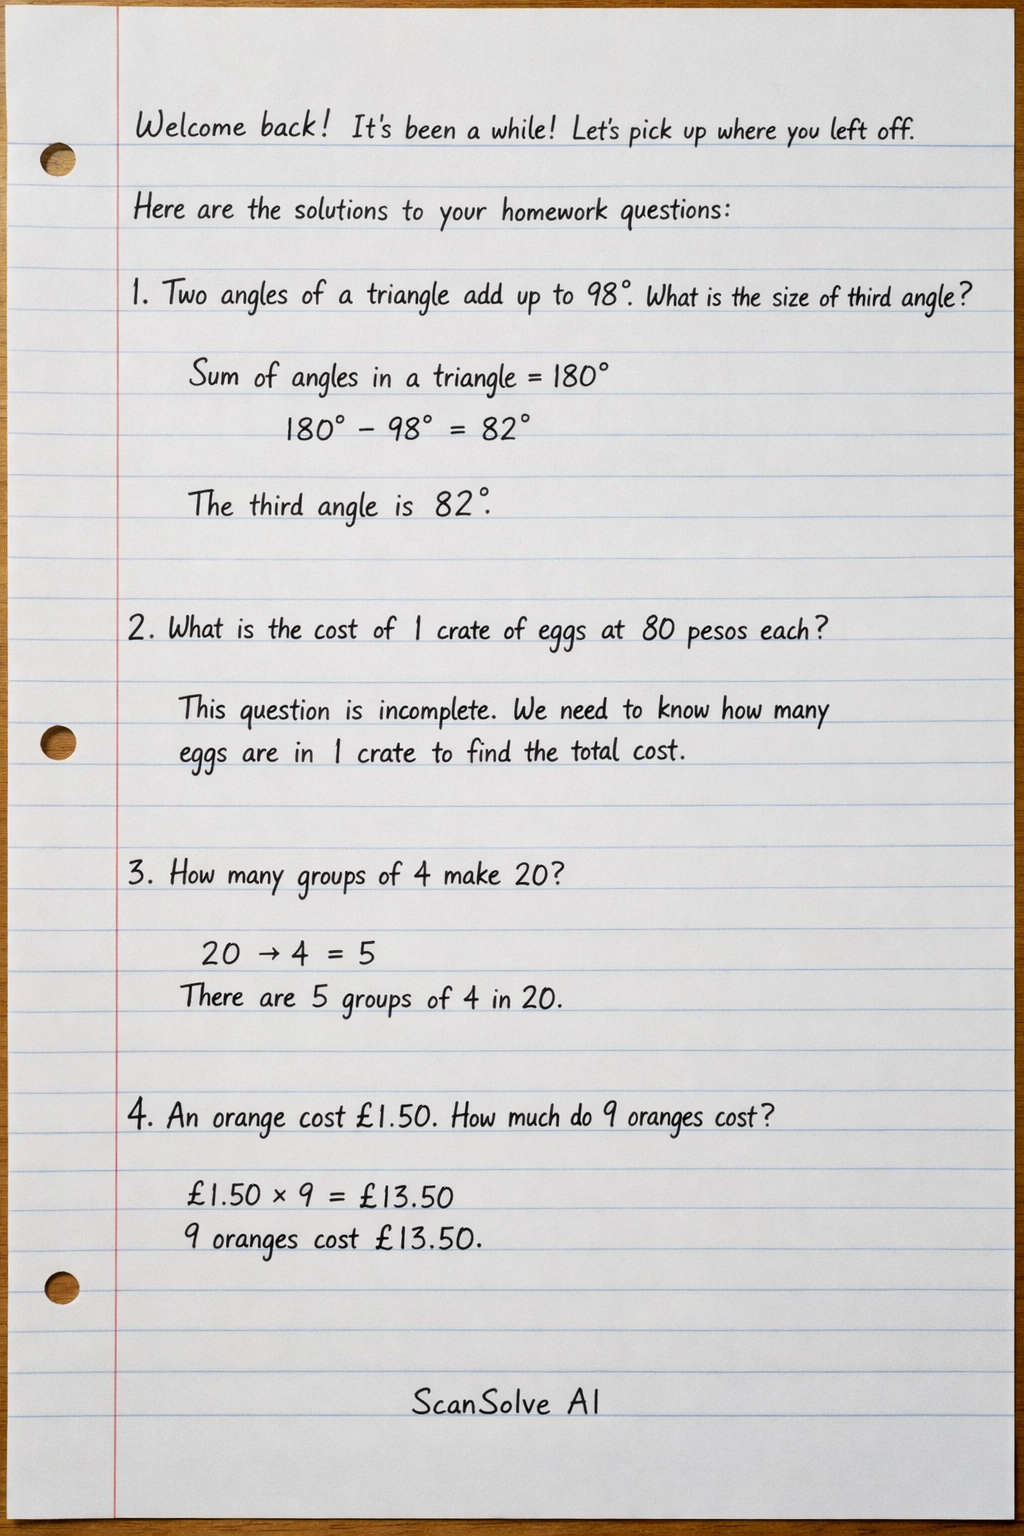 Welcome back! It's been a while! Let's pick up where you left off.
Here are the solutions to your homework questions:
1. Two angles of a triangle add up to 98°. What is the size of third angle?
Sum of angles in a triangle = 180°
180° − 98° = 82°
The third angle is 82°.
2. What is the cost of 1 crate of eggs at 80 pesos each?
This question is incomplete. We need to know how many
eggs are in 1 crate to find the total cost.
3. How many groups of 4 make 20?
20 → 4 = 5
There are 5 groups of 4 in 20.
4. An orange cost £1.50. How much do 9 oranges cost?
£1.50 × 9 = £13.50
9 oranges cost £13.50.
ScanSolve AI